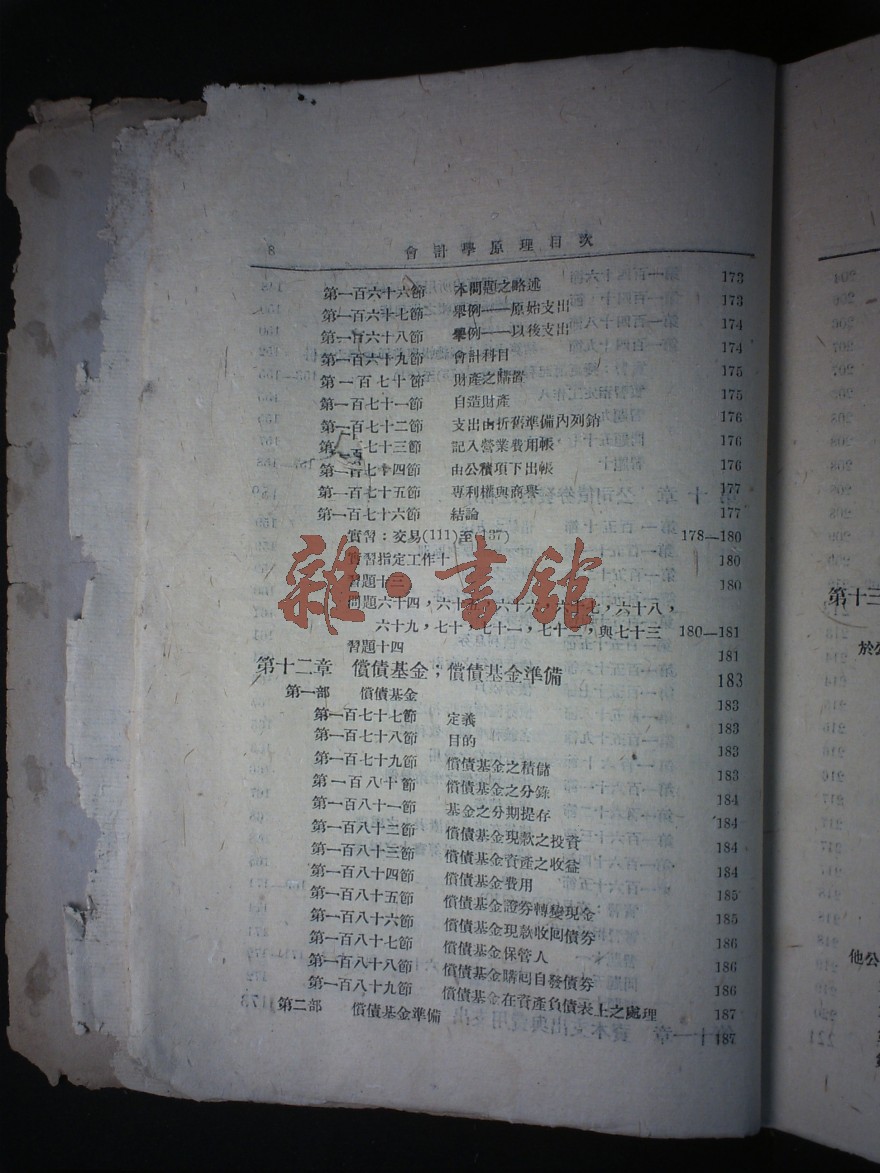 8 會計學原理目次
第一百六十六節 本問題之略述 173
第一百六十七節 舉例——原始支出 173
第一百六十八節 舉例——以後支出 174
第一百六十九節 會計科目 174
第一百七十節 財產之購置 175
第一百七十一節 自造財產 175
第一百七十二節 支出由折舊準備內列銷 176
第一百七十三節 記入營業費用帳 176
第一百七十四節 由公積項下出帳 176
第一百七十五節 專利權與商譽 177
第一百七十六節 結論 177
實習:交易(111)至(137) 178—180
實習指定工作十 180
習題十三 180
問題六十四,六十五,六十六,六十七,六十八,
六十九,七十,七十一,七十二,與七十三 180—181
習題十四 181
雜·書館
第十二章 償債基金;償債基金準備 183
第一部 償債基金 183
第一百七十七節 定義 183
第一百七十八節 目的 183
第一百七十九節 償債基金之積儲 183
第一百八十節 償債基金之分錄 184
第一百八十一節 基金之分期提存 184
第一百八十二節 償債基金現款之投資 184
第一百八十三節 償債基金資產之收益 184
第一百八十四節 償債基金費用 185
第一百八十五節 償債基金證券轉變現金 185
第一百八十六節 償債基金現款收回債券 186
第一百八十七節 償債基金保管人 186
第一百八十八節 償債基金購回自發債券 186
第一百八十九節 償債基金在資產負債表上之處理 187
第二部 償債基金準備 187
第十三
於公
他公